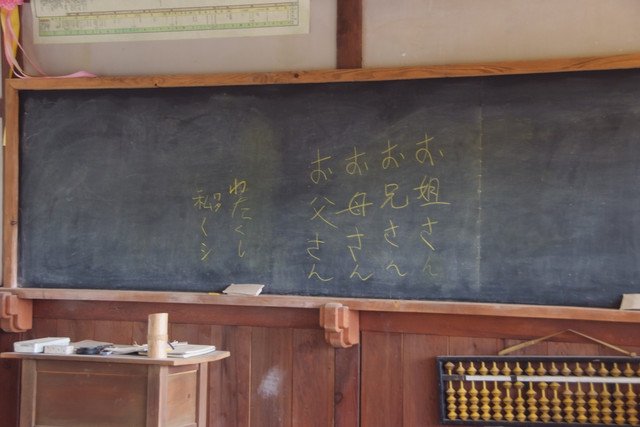 お姐さん
お兄さん
お母さん
お父さん
わたくし